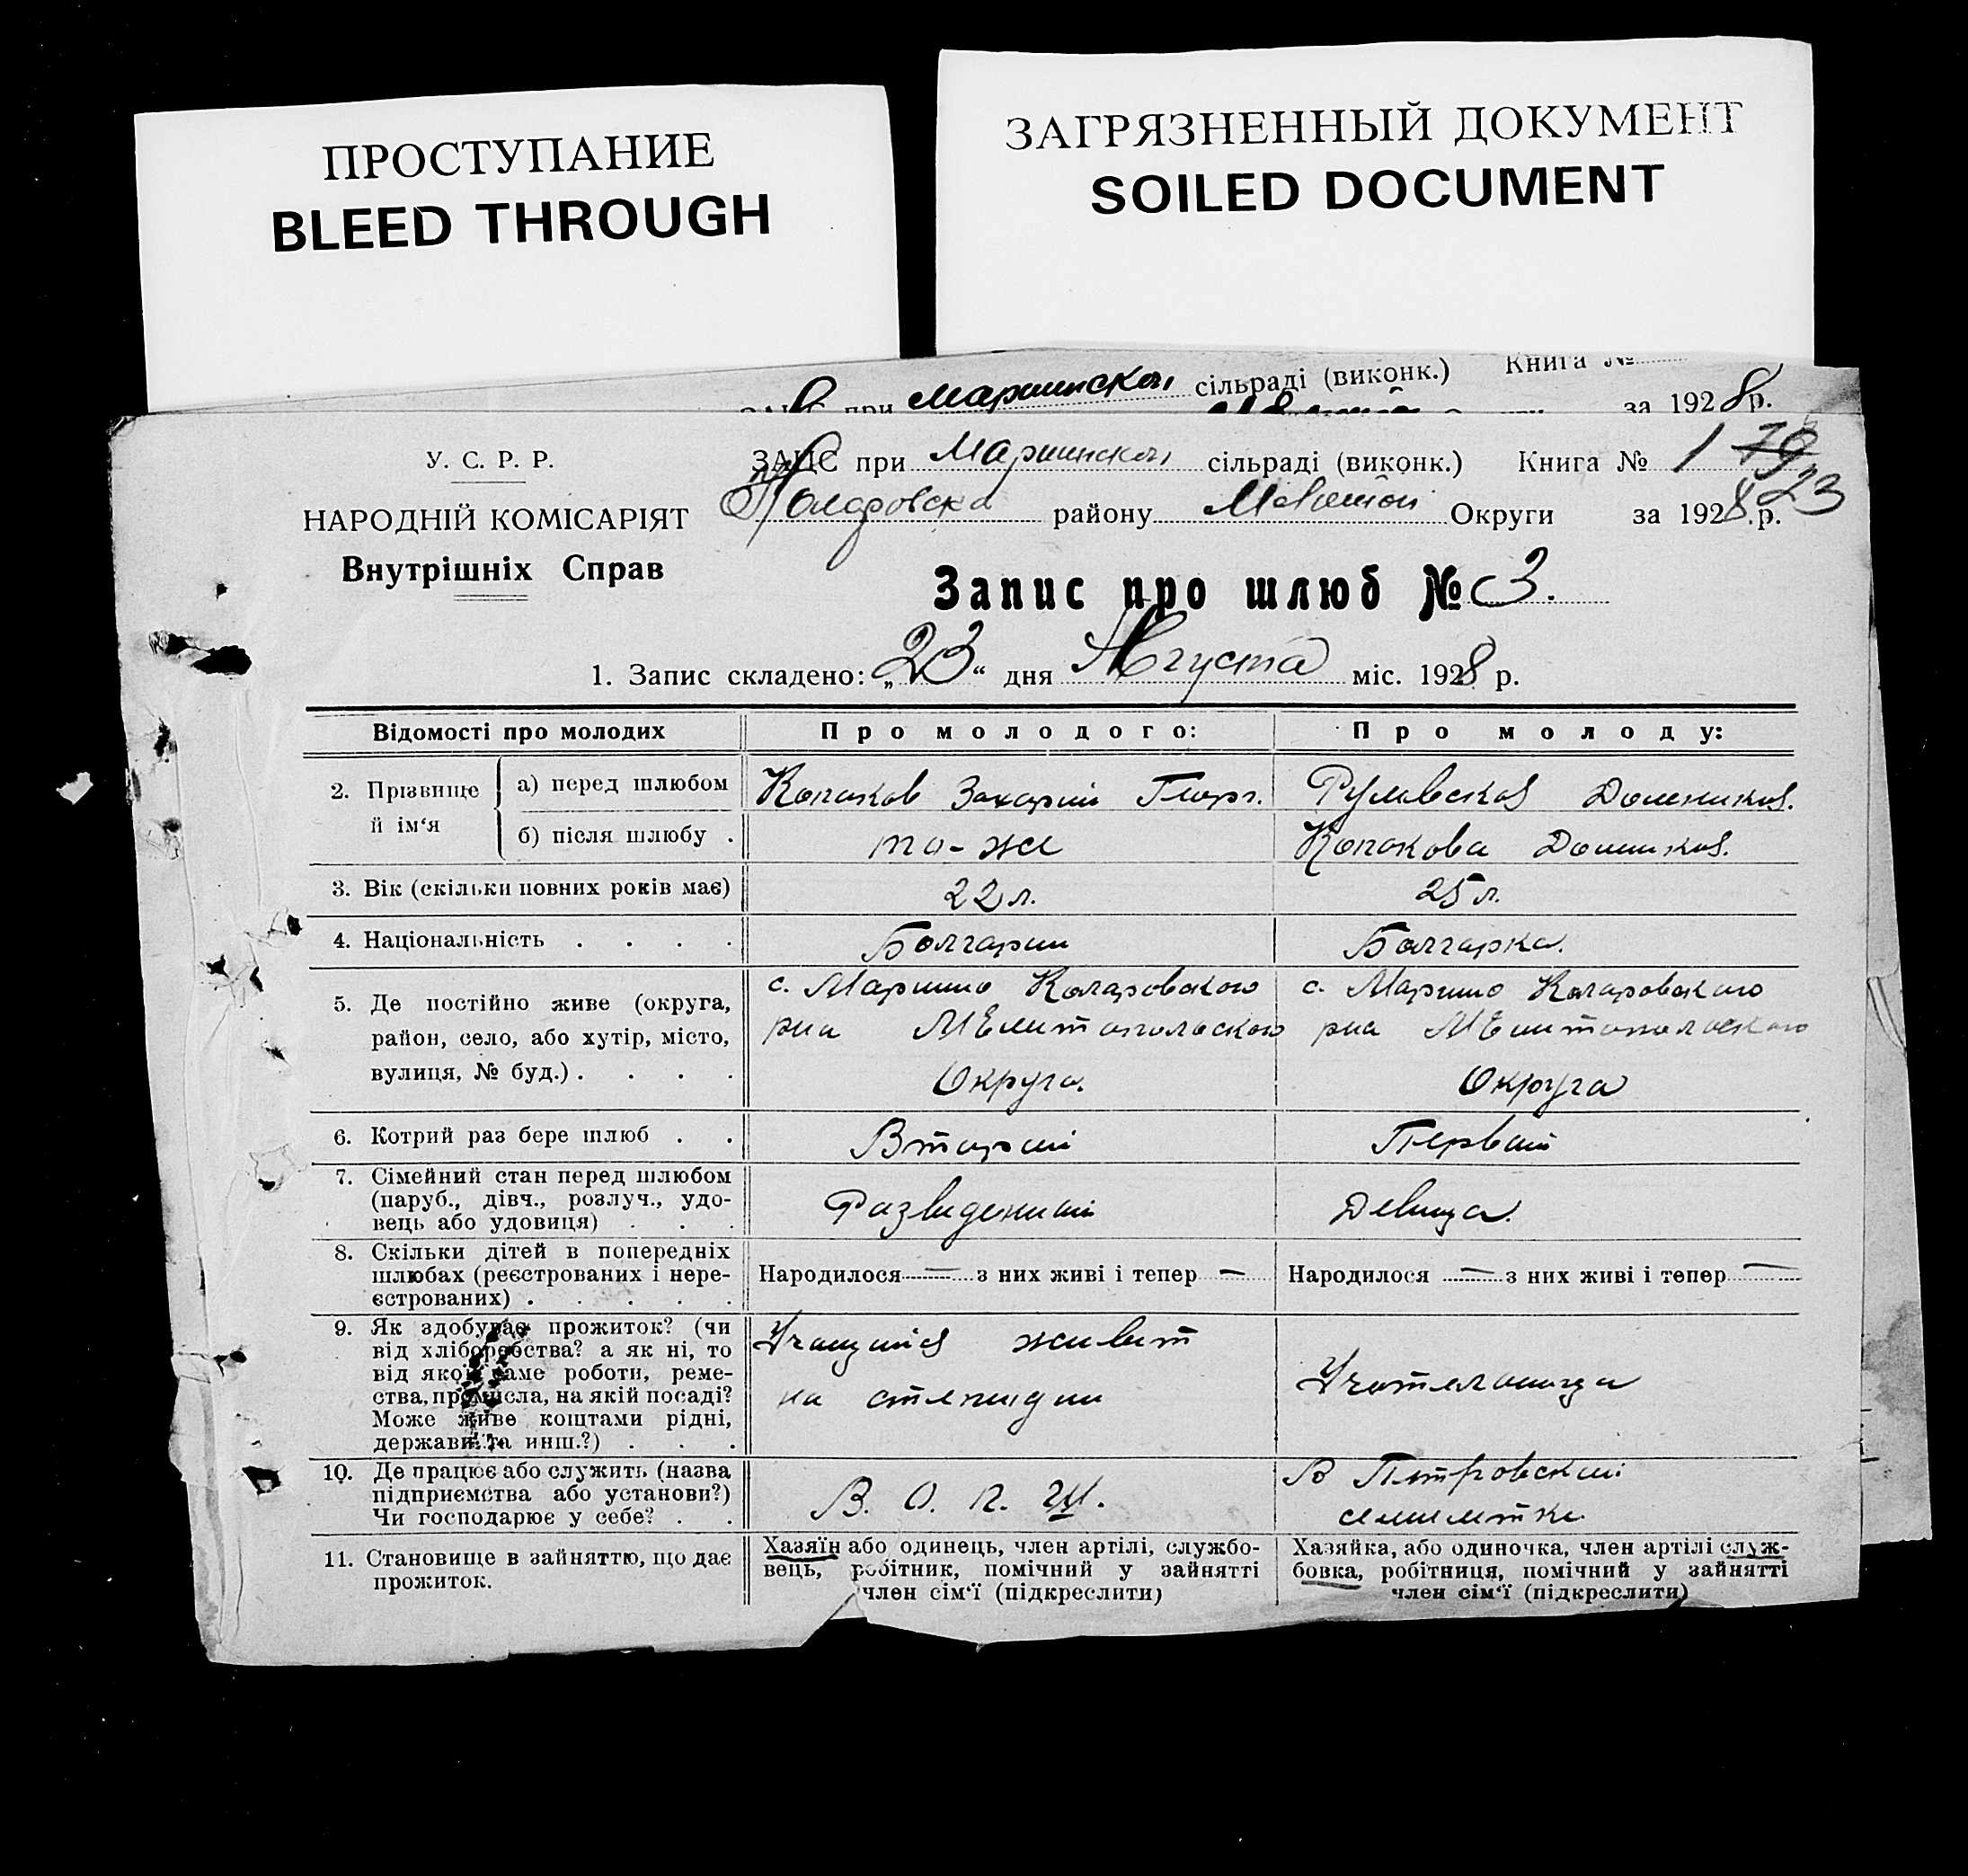 ПРОСТУПАНИЕ
BLEED THROUGH
ЗАГРЯЗНЕННЫЙ ДОКУМЕНТ
SOILED DOCUMENT
при Маринской сільраді (виконк.) Книга №
за 1928 р.
У. С. Р. Р.
НАРОДНІЙ КОМІСАРІЯТ
Внутрішніх Справ
ЗАЦС при Маринской сільраді (виконк.) Книга № 1 79
23
Коларовска району Мелитоп Округи за 1928 р.
Запис про шлюб № 3.
1. Запис складено: „23“ дня Августа міс. 1928 р.
Відомості про молодих
Про молодого:
Про молоду:
2. Прізвище й ім‘я
а) перед шлюбом
Копаков Захарий Георг.
Домникия.
б) після шлюбу .
то-же
Копакова Домникия.
3. Вік (скільки повних років має)
22 л.
25 л.
4. Національність . . . .
Болгарин
Болгарка.
5. Де постійно живе (округа,
район, село, або хутір, місто,
вулиця, № буд.) . . . .
с. Марино Коларовского
р-на Мелитопольского
Округа.
с. Марино Коларовского
р-на Мелитопольского
Округа
6. Котрий раз бере шлюб . .
Второй
Первый
7. Сімейний стан перед шлюбом
(паруб., дівч., розлуч., удо-
вець або удовиця) . . .
Разведенный
Девица.
8. Скільки дітей в попередніх
шлюбах (реєстрованих і нере-
єстрованих) . . . . .
Народилося — з них живі і тепер —
Народилося — з них живі і тепер —
9. Як здобуває прожиток? (чи
від хліборобства? а як ні, то
від якої саме роботи, реме-
ства, промисла, на якій посаді?
Може живе коштами рідні,
держави та инш.?) . . .
Учащийся живет
на стипендии
Учительница
10. Де працює або служить (назва
підприємства або установи?)
Чи господарює у себе? . .
В. О. П. Ш.
В Петровской
семилетке
11. Становище в зайняттю, що дає
прожиток.
Хазяїн або одинець, член артілі, службо-
вець, робітник, помічний у зайнятті
член сім‘ї (підкреслити)
Хазяйка, або одиночка, член артілі служ-
бовка, робітниця, помічний у зайнятті
член сім‘ї (підкреслити)